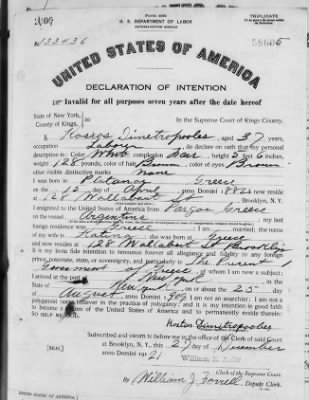 TRIPLICATE
U. S. DEPARTMENT OF LABOR
NATURALIZATION SERVICE
58605
UNITED STATES OF AMERICA
DECLARATION OF INTENTION
Invalid for all purposes seven years after the date hereof
State of New York,
County of Kings, ss:
In the Supreme Court of Kings County.
I, Kostos Dimetropoolos, aged 37 years,
occupation Laborer, do declare on oath that my personal
description is: Color White, complexion Fair, height 5 feet 6 inches,
weight 128 pounds, color of hair Brown, color of eyes Brown
other visible distinctive marks None
I was born in Platanos Greece
on the 15 day of April, anno Domini 1882; I now reside
at 128 Wallabout St, Brooklyn, N.Y.
I emigrated to the United States of America from Patras Greece
on the vessel Argentina; my last
foreign residence was Greece; I am married; the name
of my wife is Katina; she was born at Greece
and now resides at 128 Wallabout St Brooklyn
It is my bona fide intention to renounce forever all allegiance and fidelity to any foreign
prince, potentate, state, or sovereignty, and particularly to The Present
Government of Greece, of whom I am now a subject;
I arrived at the port of New York, in the
State of New York, on or about the 25 day
of August, anno Domini 1909; I am not an anarchist; I am not a
polygamist nor a believer in the practice of polygamy; and it is my intention in good faith
to become a citizen of the United States of America and to permanently reside therein:
SO HELP ME GOD.
Kostos Dimetropoolos
Subscribed and sworn to before me in the office of the Clerk of said Court
at Brooklyn, N. Y., this 27 day of December
anno Domini 1921
[SEAL]
William E. Kelly
Clerk of the Supreme Court.
By William J. Farrell, Deputy Clerk.
UNITED STATES OF AMERICA